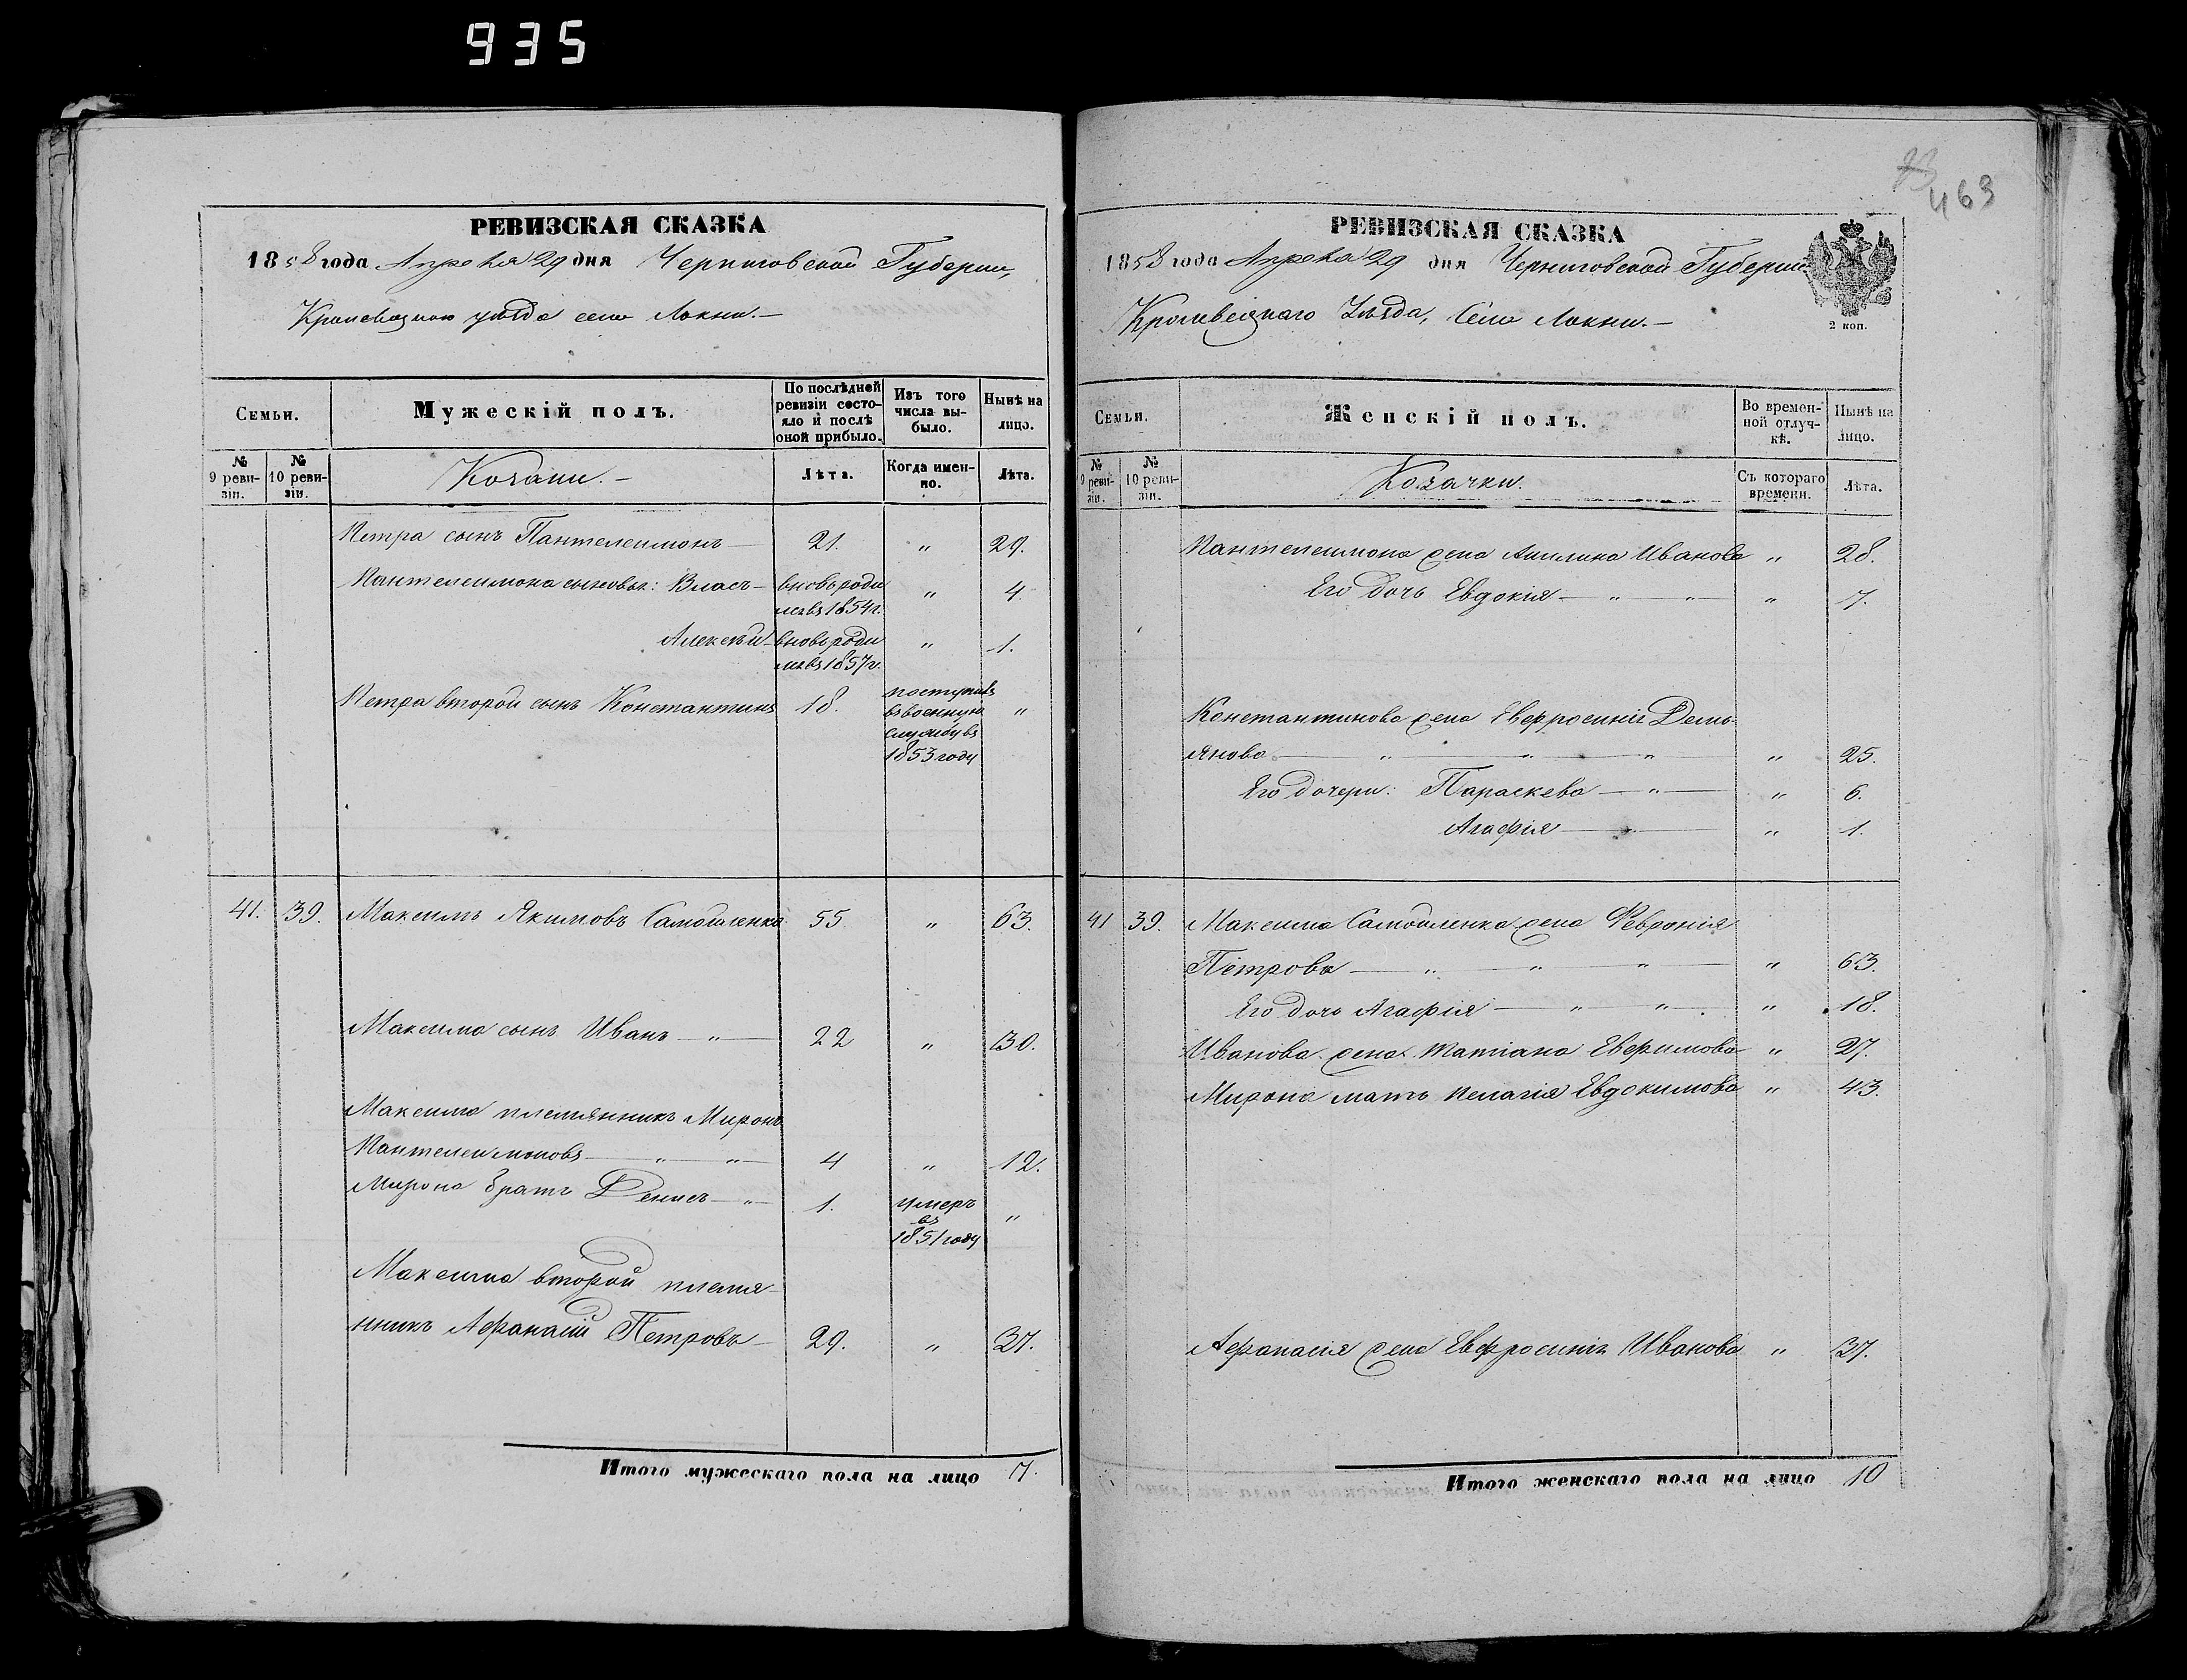 935
РЕВИЗСКАЯ СКАЗКА
1858 года Апреля 29 дня Черниговской Губернии,
Кролевецкого уѣзда село Локни. —
Семьи.
Мужескій полъ.
По послѣдней ревизіи состояло и послѣ оной прибыло.
Изъ того числа выбыло.
Нынѣ на лицо.
№ 9 ревизіи.
№ 10 ревизіи.
Козаки. —
Лѣта.
Когда именно.
Лѣта.
Петра сынъ Пантелеимонъ — 21. „ 29.
Пантелеимона сыновья: Власъ — вновь роди
лся въ 1854 г. „ 4
Алексѣй — вновь роди
лся въ 1857 г. „ 1.
Петра второй сынъ Константинъ 18. поступилъ
въ военную „
службу въ
1853 году
41. 39. Максимъ Якимовъ Самойленко 55 „ 63.
Максима сынъ Иванъ — „ — 22 „ 30.
Максима племянникъ Миронъ
Пантелеимоновъ — „ „ — 4 „ 12.
Мирона братъ Денисъ — „ — 1. умеръ
въ „
1851 году
Максима второй племя-
нникъ Афанасій Петровъ — 29. „ 37.
Итого мужескаго пола на лицо 7.
73
463
РЕВИЗСКАЯ СКАЗКА
1858 года Апреля 29 дня Черниговской Губерніи
Кролевецкаго Уѣзда, Село Локни. —
2 коп.
Семьи.
Женскій полъ.
Во временной отлучкѣ.
Нынѣ на лицо.
№ 9 ревизіи.
№ 10 ревизіи.
Козачки.
Съ котораго времени.
Лѣта.
Пантелеимона жена Акилина Иванова „ 28.
Его дочь Евдокія — „ „ „ 7.
Константинова жена Евфросинія Демь-
янова — „ „ „ „ 25.
Его дочери: Параскева — „ — „ 6.
Агафія — „ — „ 1.
41 39. Максима Самойленка жена Февронія
Петрова — „ „ „ — „ 63.
Его дочь Агафія — „ „ — „ 18.
Иванова жена Татіана Евфимова „ 27.
Мирона мать Пелагія Евдокимова „ 43.
Афанасія жена Евфросинія Иванова „ 37.
Итого женскаго пола на лицо 10